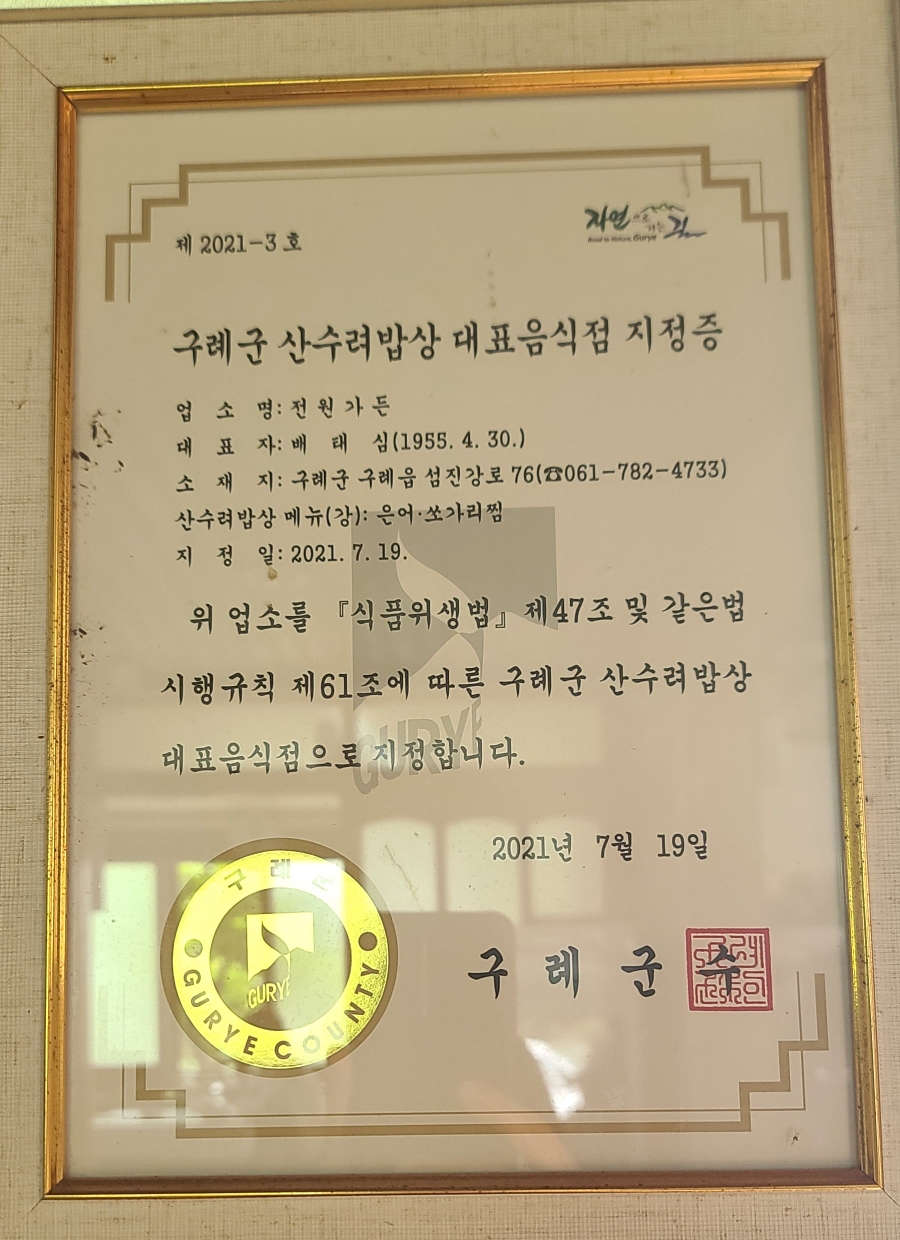 제 2021-3 호
자연으로 가는 길
Road to Nature, Gurye
구례군 산수려밥상 대표음식점 지정증
업 소 명: 전원가든
대 표 자: 배 태 심(1955. 4. 30.)
소 재 지: 구례군 구례읍 섬진강로 76(☎061-782-4733)
산수려밥상 메뉴(강): 은어·쏘가리찜
지 정 일: 2021. 7. 19.
위 업소를 『식품위생법』 제47조 및 같은법
시행규칙 제61조에 따른 구례군 산수려밥상
대표음식점으로 지정합니다.
GURYE
2021년 7월 19일
구 례 군 수
구례군
GURYE
GURYE COUNTY